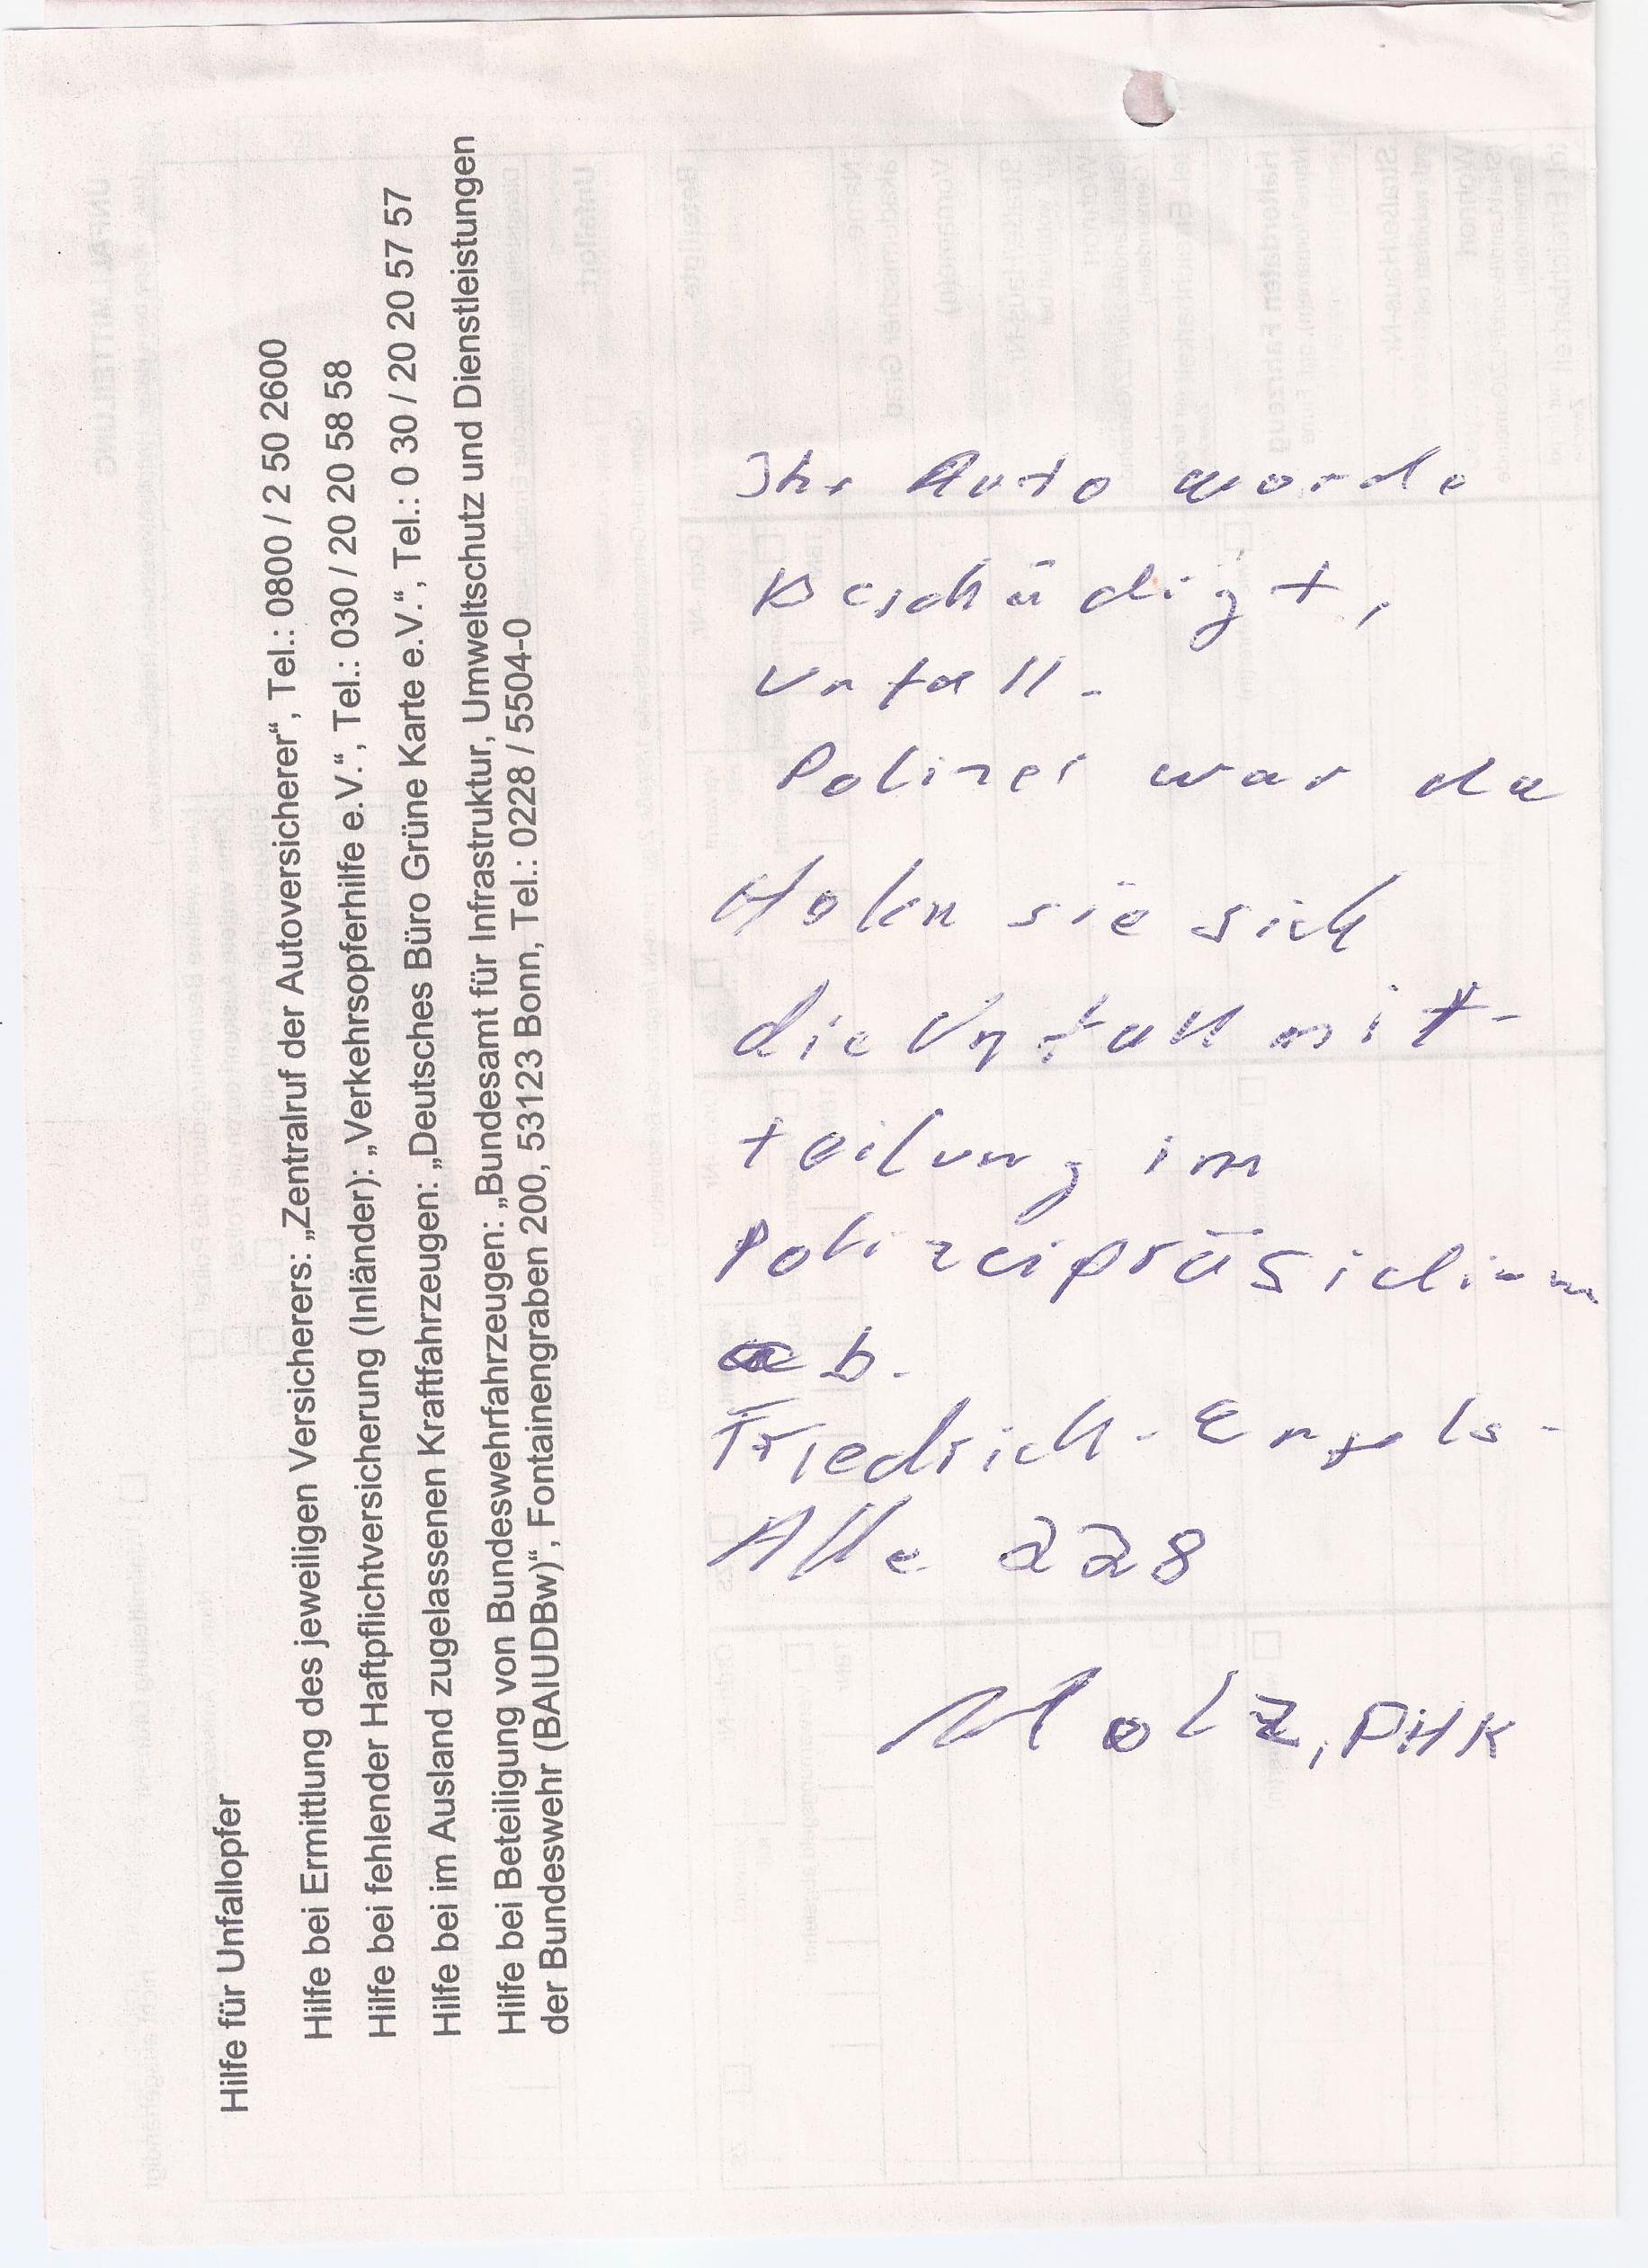 Hilfe für Unfallopfer
Hilfe bei Ermittlung des jeweiligen Versicherers: „Zentralruf der Autoversicherer“, Tel.: 0800 / 2 50 2600
Hilfe bei fehlender Haftpflichtversicherung (Inländer): „Verkehrsopferhilfe e.V.“, Tel.: 030 / 20 20 58 58
Hilfe bei im Ausland zugelassenen Kraftfahrzeugen: „Deutsches Büro Grüne Karte e.V.“, Tel.: 0 30 / 20 20 57 57
Hilfe bei Beteiligung von Bundeswehrfahrzeugen: „Bundesamt für Infrastruktur, Umweltschutz und Dienstleistungen
der Bundeswehr (BAIUDBw)“, Fontainengraben 200, 53123 Bonn, Tel.: 0228 / 5504-0
Ihr Auto worde
Beschädigt,
Unfall.
Polizei war da
Holen sie sich
die Unfallmit-
teilung im
Polizeipräsidium
ab.
Friedrich-Engels-
Alle 228
Molz, PHK